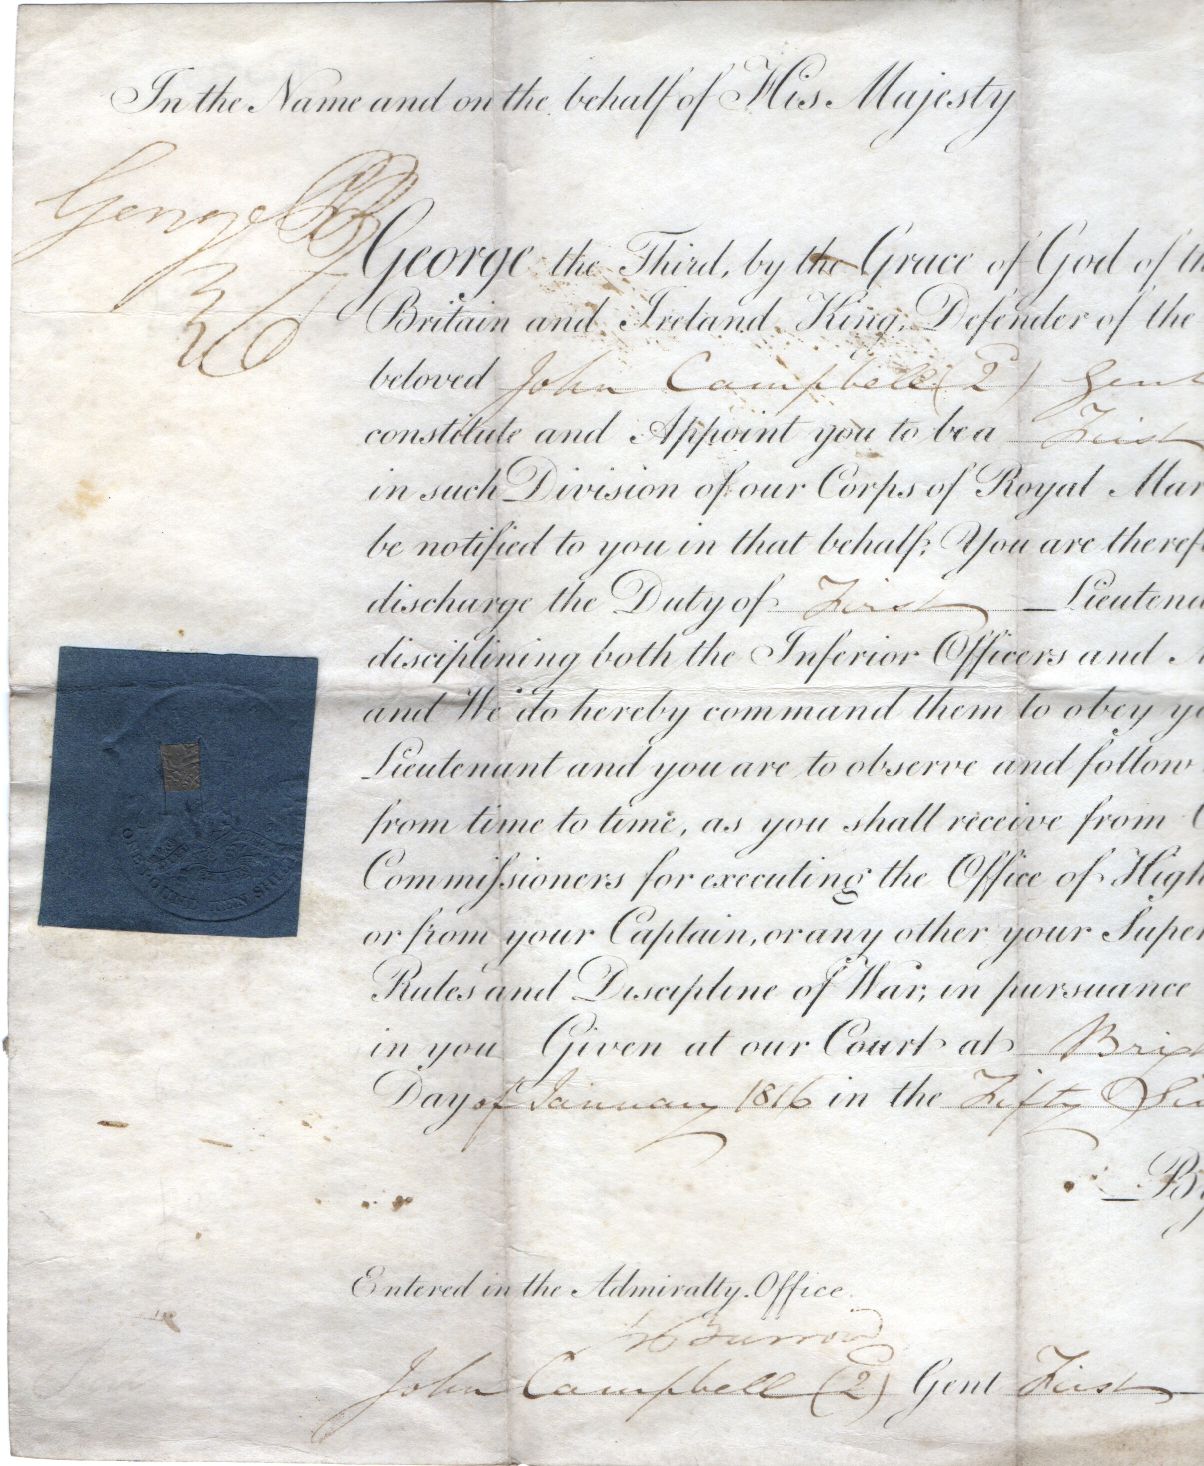 In the Name and on the behalf of His Majesty
George P
R
George the Third, by the Grace of God of th
Britain and Ireland King, Defender of the
beloved John Campbell (2d) Gent
constitute and Appoint you to be a First
in such Division of our Corps of Royal Mar
be notified to you in that behalf; You are theref
discharge the Duty of First Lieutena
disciplining both the Inferior Officers and
and We do hereby command them to obey yo
Lieutenant and you are to observe and follow
from time to time, as you shall receive from
Commissioners for executing the Office of High
or from your Captain, or any other your Super
Rules and Discipline of War, in pursuance
in you Given at our Court at Brig
Day of January 1816 in the Fifty Six
By
ONE POUND TEN SHILL
Entered in the Admiralty Office.
Barrow
John Campbell (2d) Gent First